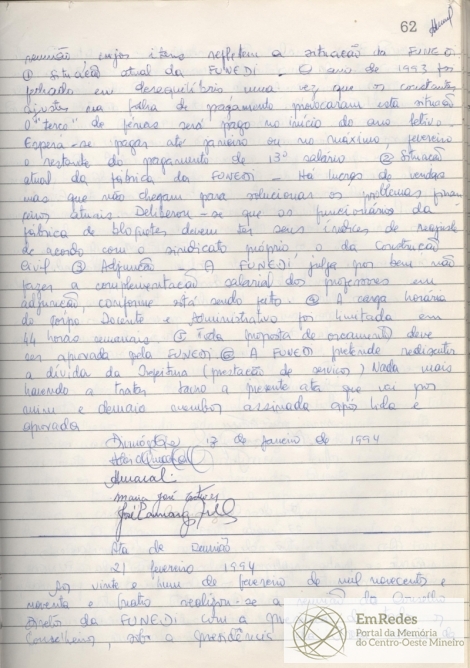 62
reunião, cujos itens refletem a situação da FUNEDI
① Situação atual da FUNEDI - O ano de 1993 foi
fechado em desequilíbrio uma vez que os constantes
ajustes na folha de pagamento provocaram esta situação
O "terço" de férias será pago no início do ano letivo.
Espera-se pagar até janeiro ou no máximo, fevereiro
o restante do pagamento de 13º salário ② Situação
atual da fábrica da FUNEDI - Há lucros de vendas
mas que não chegam para solucionar os problemas finan
ceiros atuais. Deliberou-se que os funcionários da
fábrica de bloquetes devem ter seus índices de reajuste
de acordo com o sindicato próprio o da Construção
Civil ③ Adjunção - A FUNEDI julga por bem não
fazer a complementação salarial dos professores em
adjunção, conforme está sendo feito. ④ A carga horária
do Corpo Docente e Administrativo foi limitada em
44 horas semanais. ⑤ Toda proposta de orçamento deve
ser aprovada pela FUNEDI ⑥ A FUNEDI pretende rediscutir
a dívida da Prefeitura (prestação de serviços) Nada mais
havendo a tratar lavro a presente ata que vai por
mim e demais membros assinada após lida e
aprovada
Divinópolis 17 de janeiro de 1994
Amaral
Maria José
José
Ata de Reunião
21 fevereiro 1994
Aos vinte e hum de fevereiro de mil novecentos e
noventa e quatro realizou-se a reunião do Conselho
Diretor da FUNEDI com a
Conselheiros, sob a presidência
EmRedes
Portal da Memória
do Centro-Oeste Mineiro